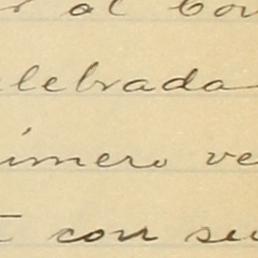 al Con
elebrada
imero ve
con su